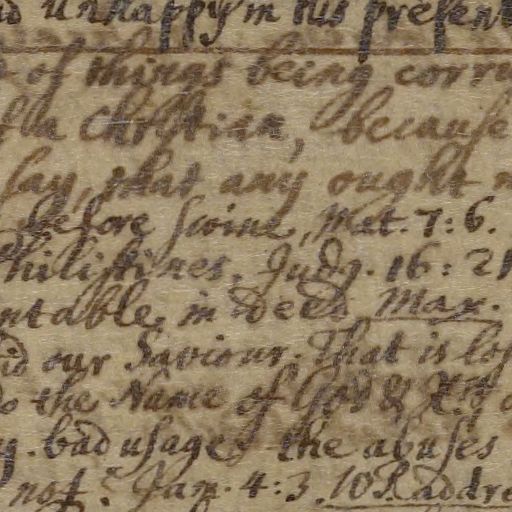 unhappy in his present
of things being corru
a Christian, because
say, that any ought n
before swine, Mat. 7: 6.
Philistines. Judg. 16: 21
ntable, in deed Max.
id our Saviour. That is los
the Name of God &
y. bad usage, the abuses
not? Jam. 4: 3. 10 R. addre